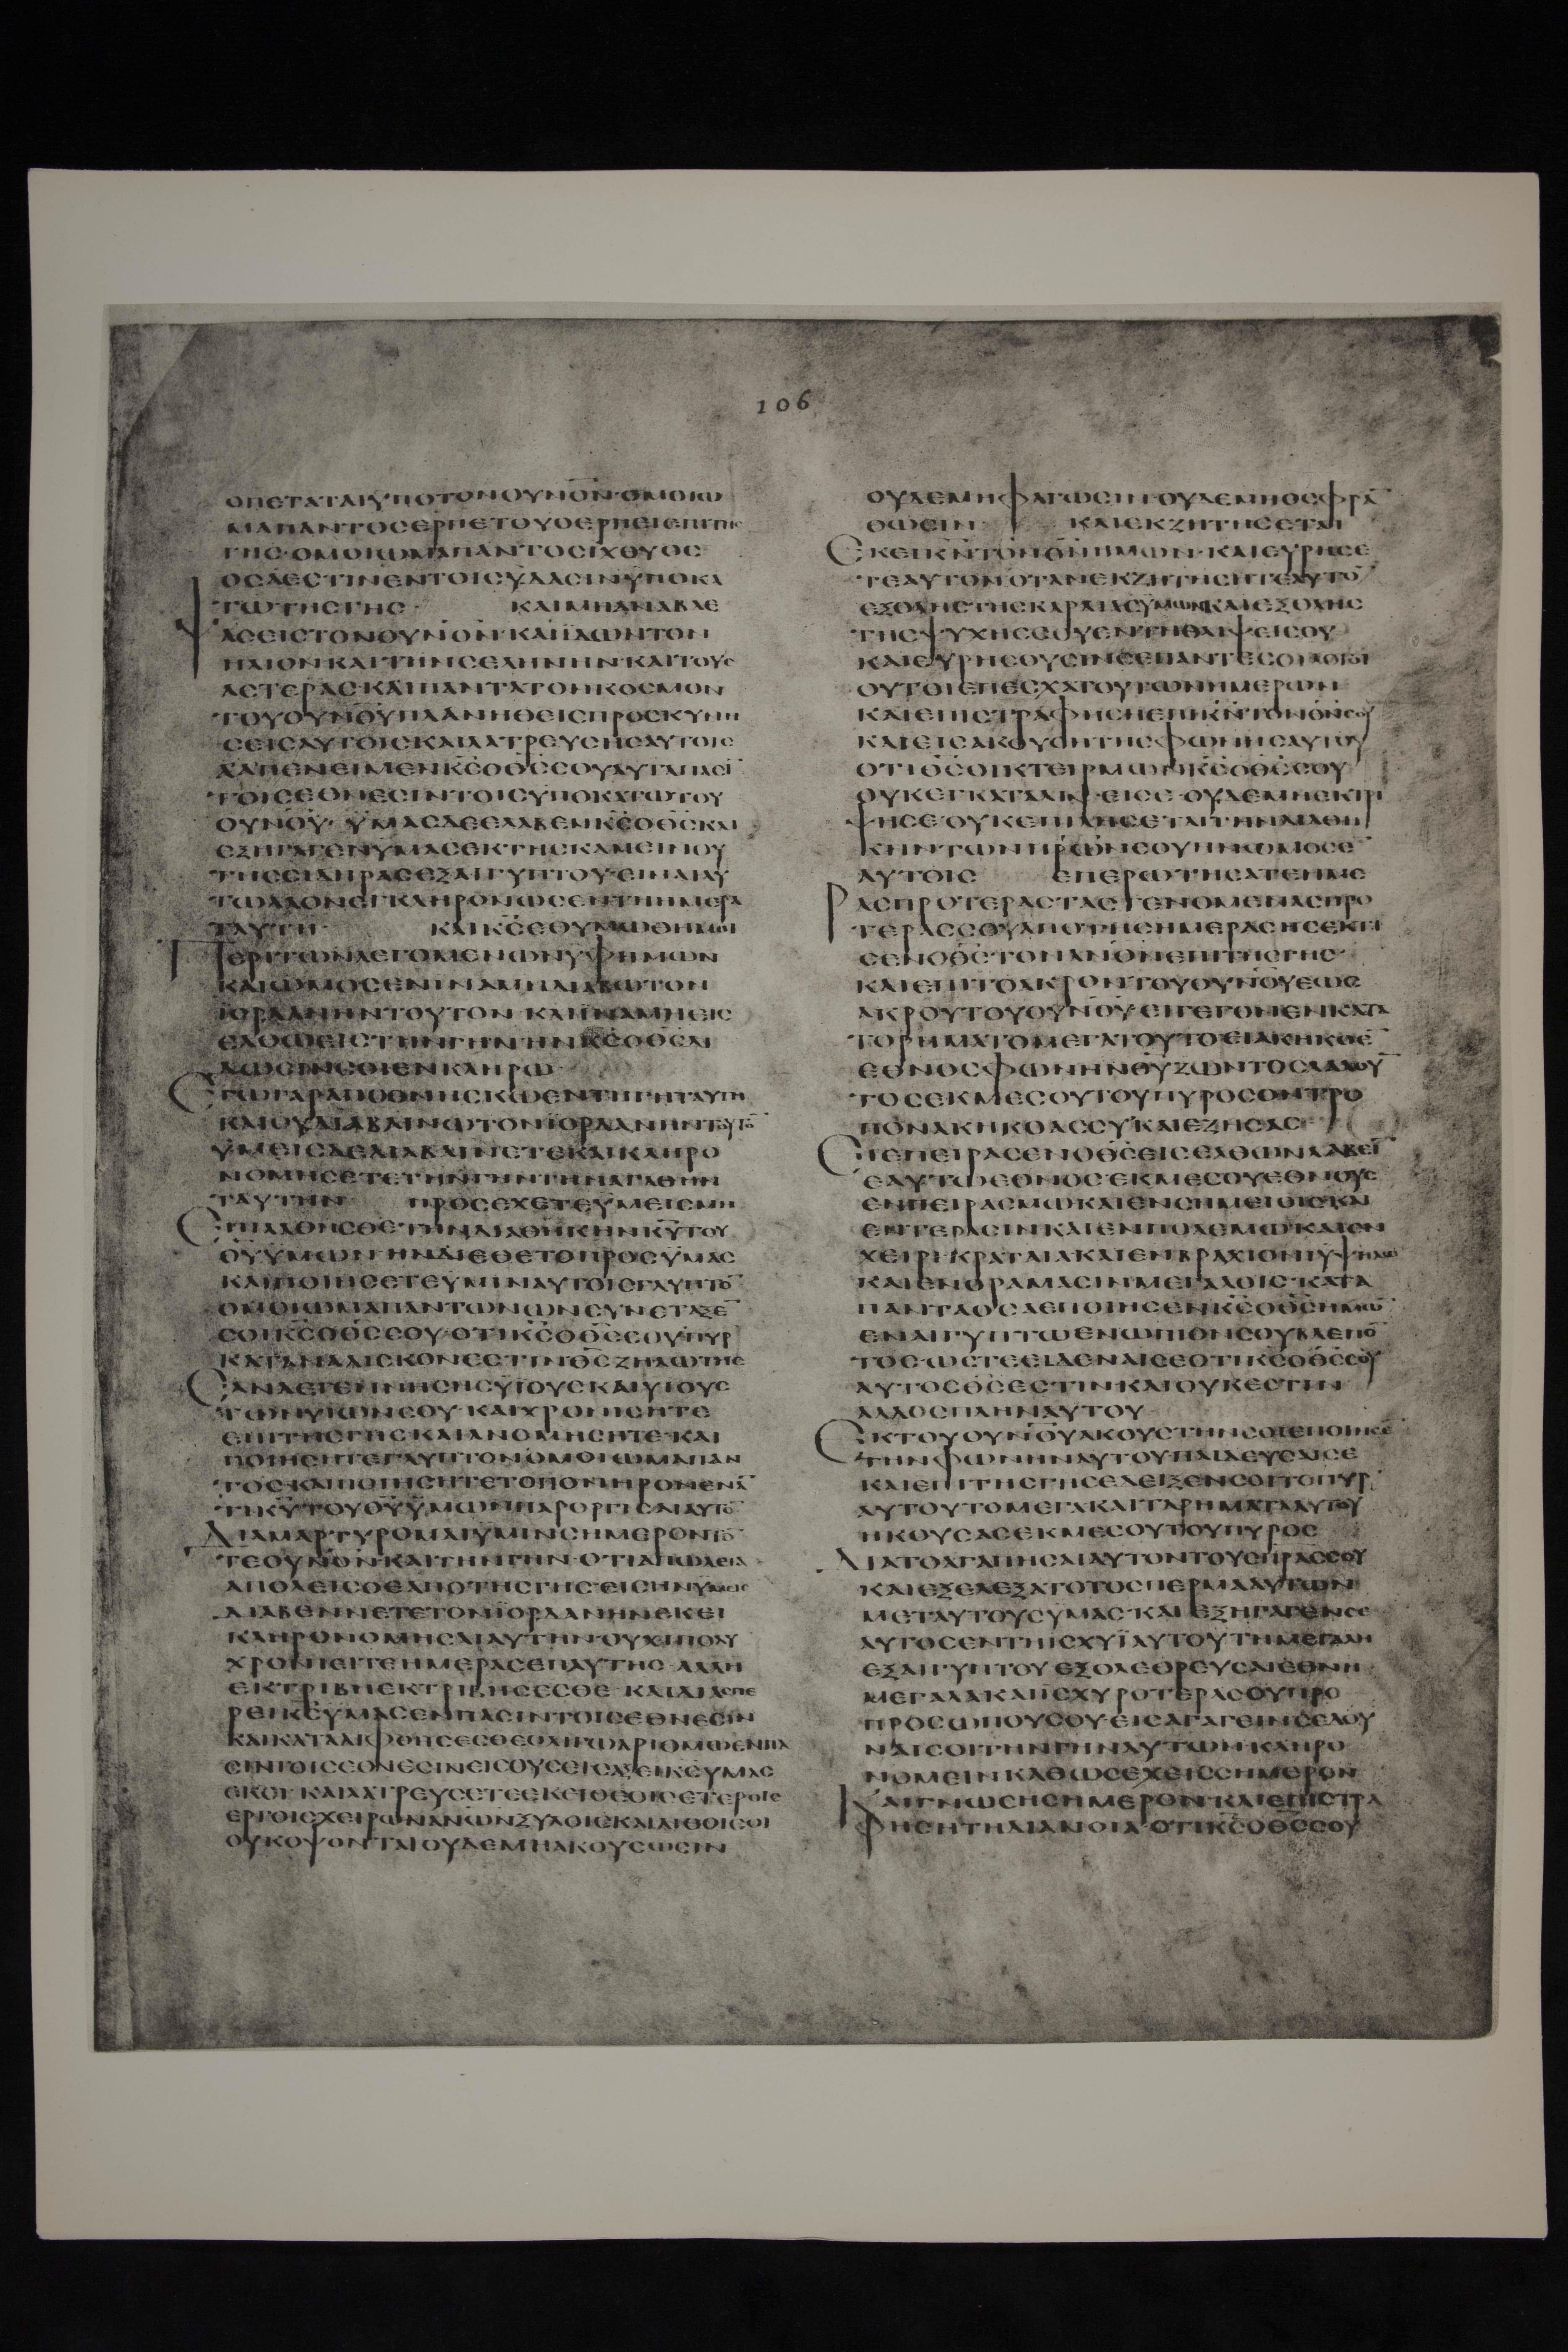 106
ΟΠΕΤΑΤΑΙΥΠΟΤΟΝΟΥΝΟΝ·ΟΜΟΙΩ
ΜΑΠΑΝΤΟCΕΡΠΕΤΟΥΟΕΡΠΕΙΕΠΙΤΗC
ΓΗC·ΟΜΟΙΩΜΑΠΑΝΤΟCΙΧΘΥΟC
ΟCΑΕCΤΙΝΕΝΤΟΙCΥΔΑCΙΝΥΠΟΚΑ
ΤΩΤΗCΓΗC· ΚΑΙΜΗΑΝΑΒΛΕ
ΨΑCΕΙCΤΟΝΟΥΝΟΝ·ΚΑΙΪΔΩΝΤΟΝ
ΗΛΙΟΝΚΑΙΤΗΝCΕΛΗΝΗΝ·ΚΑΙΤΟΥC
ΑCΤΕΡΑC·ΚΑΙΠΑΝΤΑΤΟΝΚΟCΜΟΝ
ΤΟΥΟΥΝΟΥΠΛΑΝΗΘΕΙCΠΡΟCΚΥΝΗ
CΕΙCΑΥΤΟΙCΚΑΙΛΑΤΡΕΥCΗCΑΥΤΟΙC
ΑΑΠΕΝΕΙΜΕΝΚCΟΘCCΟΥΑΥΤΑΠΑCΙ
ΤΟΙCΕΘΝΕCΙΝΤΟΙCΥΠΟΚΑΤΩΤΟΥ
ΟΥΝΟΥ· ΥΜΑCΔΕΕΛΑΒΕΝΚCΟΘCΚΑΙ
ΕΞΗΓΑΓΕΝΥΜΑCΕΚΤΗCΚΑΜΕΙΝΟΥ
ΤΗCCΙΔΗΡΑCΕΞΑΙΓΥΠΤΟΥ·ΕΙΝΑΙΑΥ
ΤΩΛΑΟΝΕΓΚΛΗΡΟΝΩCΕΝΤΗΗΜΕΡΑ
ΤΑΥΤΗ· ΚΑΙΚCΕΘΥΜΩΘΗΜΟΙ
ΠΕΡΙΤΩΝΛΕΓΟΜΕΝΩΝΥΦΗΜΩΝ
ΚΑΙΩΜΟCΕΝΙΝΑΜΗΔΙΑΒΩΤΟΝ
ΙΟΡΔΑΝΗΝΤΟΥΤΟΝ·ΚΑΙΪΝΑΜΗΕΙC
ΕΛΘΩΕΙCΤΗΝΓΗΝΗΝΚCΟΘCΔΙ
ΔΩCΙΝCΟΙΕΝΚΛΗΡΩ·
ΕΓΩΓΑΡΑΠΟΘΝΗCΚΩΕΝΤΗΓΗΤΑΥΤΗ
ΚΑΙΟΥΔΙΑΒΑΙΝΩΤΟΝΙΟΡΔΑΝΗΝΤΟΥΤΟ
ΥΜΕΙCΔΕΔΙΑΒΑΙΝΕΤΕΚΑΙΚΛΗΡΟ
ΝΟΜΗCΕΤΕΤΗΝΓΗΝΤΗΝΑΓΑΘΗΝ
ΤΑΥΤΗΝ· ΠΡΟCΕΧΕΤΕΥΜΕΙCΜΗ
ΕΠΙΛΑΘΗCΘΕΤΗΝΔΙΑΘΗΚΗΝΚΥΤΟΥ
ΘΥΥΜΩΝ·ΗΝΔΙΕΘΕΤΟΠΡΟCΥΜΑC
ΚΑΙΠΟΙΗCΕΤΕΥΜΙΝΑΥΤΟΙCΓΛΥΠΤΟ
ΟΜΟΙΩΜΑΠΑΝΤΩΝΩΝCΥΝΕΤΑΞΕ
CΟΙΚCΟΘCCΟΥ·ΟΤΙΚCΟΘCCΟΥΠΥΡ
ΚΑΤΑΝΑΛΙCΚΟΝΕCΤΙΝΘCΖΗΛΩΤΗC
ΕΑΝΔΕΓΕΝΝΗCΗCΥΙΟΥCΚΑΙΥΙΟΥC
ΤΩΝΥΙΩΝCΟΥ·ΚΑΙΧΡΟΝΙCΗΤΕ
ΕΠΙΤΗCΓΗCΚΑΙΑΝΟΜΗCΗΤΕ·ΚΑΙ
ΠΟΙΗCΗΤΕΓΛΥΠΤΟΝΟΜΟΙΩΜΑΠΑΝ
ΤΟC·ΚΑΙΠΟΙΗCΗΤΕΤΟΠΟΝΗΡΟΝΕΝΑ
ΤΙΚΥΤΟΥΘΥΥΜΩΝΠΑΡΟΡΓΙCΑΙΑΥΤΟ
ΔΙΑΜΑΡΤΥΡΟΜΑΙΥΜΙΝCΗΜΕΡΟΝΤΟ
ΤΕΟΥΝΟΝΚΑΙΤΗΝΓΗΝ·ΟΤΙΑΠΩΛΕΙΑ
ΑΠΟΛΕΙCΘΕΑΠΟΤΗCΓΗC·ΕΙCΗΝΥΜΕΙC
ΔΙΑΒΕΝΝΕΤΕΤΟΝΪΟΡΔΑΝΗΝΕΚΕΙ
ΚΛΗΡΟΝΟΜΗCΑΙΑΥΤΗΝ·ΟΥΧΙΠΟΛΥ
ΧΡΟΝΙΕΙΤΕΗΜΕΡΑCΕΠΑΥΤΗC·ΑΛΛΗ
ΕΚΤΡΙΒΗΕΚΤΡΙΒΗCΕCΘΕ·ΚΑΙΔΙΑCΠΕ
ΡΕΙΚCΥΜΑCΕΝΠΑCΙΝΤΟΙCΕΘΝΕCΙΝ
ΚΑΙΚΑΤΑΛΙΦΘΗCΕCΘΕΟΛΙΓΩΑΡΙΘΜΩΕΝΠΑ
CΙΝΤΟΙCΕΘΝΕCΙΝΕΙCΟΥCΕΙCΑΞΕΙΚCΥΜΑC
ΕΚΕΙ·ΚΑΙΛΑΤΡΕΥCΕΤΕΕΚΕΙΘΕΟΙCΕΤΕΡΟΙC
ΕΡΓΟΙCΧΕΙΡΩΝΑΝΩΝΞΥΛΟΙCΚΑΙΛΙΘΟΙCΟΙ
ΟΥΚΟΨΟΝΤΑΙΟΥΔΕΜΗΑΚΟΥCΩCΙΝ
ΟΥΔΕΜΗΦΑΓΩCΙΝ·ΟΥΔΕΜΗΟCΦΡΑ
ΘΩCΙΝ· ΚΑΙΕΚΖΗΤΗCΕΤΑΙ
ΕΚΕΙΚΝΤΟΝΘΝΗΜΩΝ·ΚΑΙΕΥΡΗCΕ
ΤΕΑΥΤΟΝΟΤΑΝΕΚΖΗΤΗCΗΤΕΑΥΤΟ
ΕΞΟΛΗCΤΗCΚΑΡΔΙΑCΥΜΩΝΚΑΙΕΞΟΛΗC
ΤΗCΨΥΧΗCCΟΥΕΝΤΗΘΛΙΨΕΙCΟΥ
ΚΑΙΕΥΡΗCΟΥCΙΝCΕΠΑΝΤΕCΟΙΛΟΓΟΙ
ΟΥΤΟΙΕΠΕCΧΑΤΟΥΤΩΝΗΜΕΡΩΝ
ΚΑΙΕΠΙCΤΡΑΦΗCΗΕΠΙΚΝΤΟΝΘΝCΟΥ
ΚΑΙΕΙCΑΚΟΥCΗΤΗCΦΩΝΗCΑΥΤΟΥ
ΟΤΙΘCΟΙΚΤΕΙΡΜΩΝΚCΟΘCCΟΥ
ΟΥΚΕΓΚΑΤΑΛΙΨΕΙCΕ·ΟΥΔΕΜΗΕΚΤΡΙ
ΨΗCΕ·ΟΥΚΕΠΙΛΗCΕΤΑΙΤΗΝΔΙΑΘΗ
ΚΗΝΤΩΝΠΡΩΝCΟΥΗΝΩΜΟCΕ
ΑΥΤΟΙC ΕΠΕΡΩΤΗCΑΤΕΗΜΕ
ΡΑCΠΡΟΤΕΡΑCΤΑCΓΕΝΟΜΕΝΑCΠΡΟ
ΤΕΡΑCCΟΥΑΠΟΤΗCΗΜΕΡΑCΗCΕΚΤΙ
CΕΝΟΘCΤΟΝΑΝΟΝΕΠΙΤΗCΓΗC·
ΚΑΙΕΠΙΤΟΑΚΡΟΝΤΟΥΟΥΝΟΥΕΩC
ΑΚΡΟΥΤΟΥΟΥΝΟΥ·ΕΙΓΕΓΟΝΕΝΚΑΤΑ
ΤΟΡΗΜΑΤΟΜΕΓΑΤΟΥΤΟΕΙΑΚΗΚΟΕ
ΕΘΝΟCΦΩΝΗΝΘΥΖΩΝΤΟCΛΑΛΟΥ
ΤΟCΕΚΜΕCΟΥΤΟΥΠΥΡΟCΟΝΤΡΟ
ΠΟΝΑΚΗΚΟΑCCΥΚΑΙΕΖΗCΑC·
ΕΙΕΠΕΙΡΑCΕΝΟΘCΕΙCΕΛΘΩΝΛΑΒΕΙ
ΕΑΥΤΩΕΘΝΟCΕΚΜΕCΟΥΕΘΝΟΥC
ΕΝΠΕΙΡΑCΜΩΚΑΙΕΝCΗΜΕΙΟΙCΚΑΙ
ΕΝΤΕΡΑCΙΝΚΑΙΕΝΠΟΛΕΜΩΚΑΙΕΝ
ΧΕΙΡΙΚΡΑΤΑΙΑΚΑΙΕΝΒΡΑΧΙΟΝΙΥΨΗΛΩ
ΚΑΙΕΝΟΡΑΜΑCΙΝΜΕΓΑΛΟΙC·ΚΑΤΑ
ΠΑΝΤΑΟCΑΕΠΟΙΗCΕΝΚCΟΘCΗΜΩ
ΕΝΑΙΓΥΠΤΩΕΝΩΠΙΟΝCΟΥΒΛΕΠΟ
ΤΟC·ΩCΤΕΕΙΔΕΝΑΙCΕΟΤΙΚCΟΘCCΟΥ
ΑΥΤΟCΘCΕCΤΙΝ·ΚΑΙΟΥΚΕCΤΙΝ
ΑΛΛΟCΠΛΗΝΑΥΤΟΥ·
ΕΚΤΟΥΟΥΝΟΥΑΚΟΥCΤΗΝCΟΙΕΠΟΙΗCΕ
ΤΗΝΦΩΝΗΝΑΥΤΟΥΠΑΙΔΕΥCΑΙCΕ
ΚΑΙΕΠΙΤΗCΓΗCΕΔΕΙΞΕΝCΟΙΤΟΠΥΡ
ΑΥΤΟΥΤΟΜΕΓΑ·ΚΑΙΤΑΡΗΜΑΤΑΑΥΤΟΥ
ΗΚΟΥCΑCΕΚΜΕCΟΥΤΟΥΠΥΡΟC
ΔΙΑΤΟΑΓΑΠΗCΑΙΑΥΤΟΝΤΟΥCΠΡΑCCΟΥ
ΚΑΙΕΞΕΛΕΞΑΤΟΤΟCΠΕΡΜΑΑΥΤΩΝ
ΜΕΤΑΥΤΟΥCΥΜΑC·ΚΑΙΕΞΗΓΑΓΕΝCΕ
ΑΥΤΟCΕΝΤΗΙCΧΥΪΑΥΤΟΥΤΗΜΕΓΑΛΗ
ΕΞΑΙΓΥΠΤΟΥΕΞΟΛΕΘΡΕΥCΑΙΕΘΝΗ
ΜΕΓΑΛΑΚΑΙΪCΧΥΡΟΤΕΡΑCΟΥΠΡΟ
ΠΡΟCΩΠΟΥCΟΥ·ΕΙCΑΓΑΓΕΙΝCΕΔΟΥ
ΝΑΙCΟΙΤΗΝΓΗΝΑΥΤΩΝΚΛΗΡΟ
ΝΟΜΕΙΝΚΑΘΩCΕΧΕΙCCΗΜΕΡΟΝ
ΚΑΙΓΝΩCΗCΗΜΕΡΟΝ·ΚΑΙΕΠΙCΤΡΑ
ΦΗCΗΤΗΔΙΑΝΟΙΑ·ΟΤΙΚCΟΘCCΟΥ